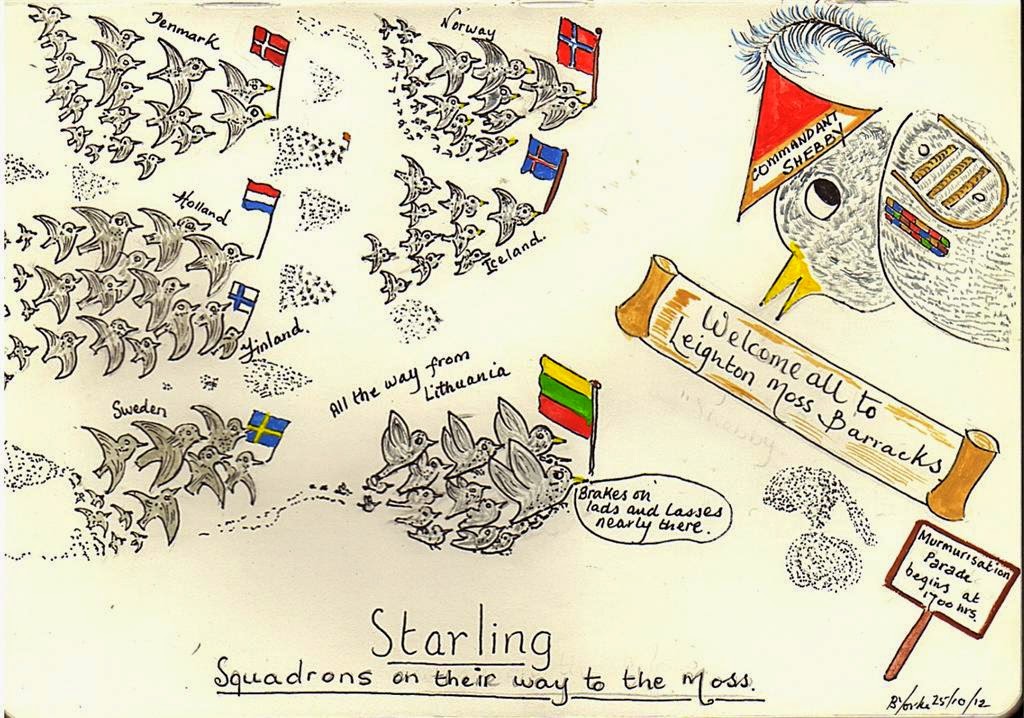 Denmark
Norway
COMMANDANT
SHEBBY
Holland
Iceland.
Finland.
Welcome all to
Leighton Moss Barracks
All the way from
Lithuania
Sweden
Brakes on
lads and Lasses
nearly there.
Murmurisation
Parade
begins at
1700 hrs.
Starling
Squadrons on their way to the Moss.
25/10/12